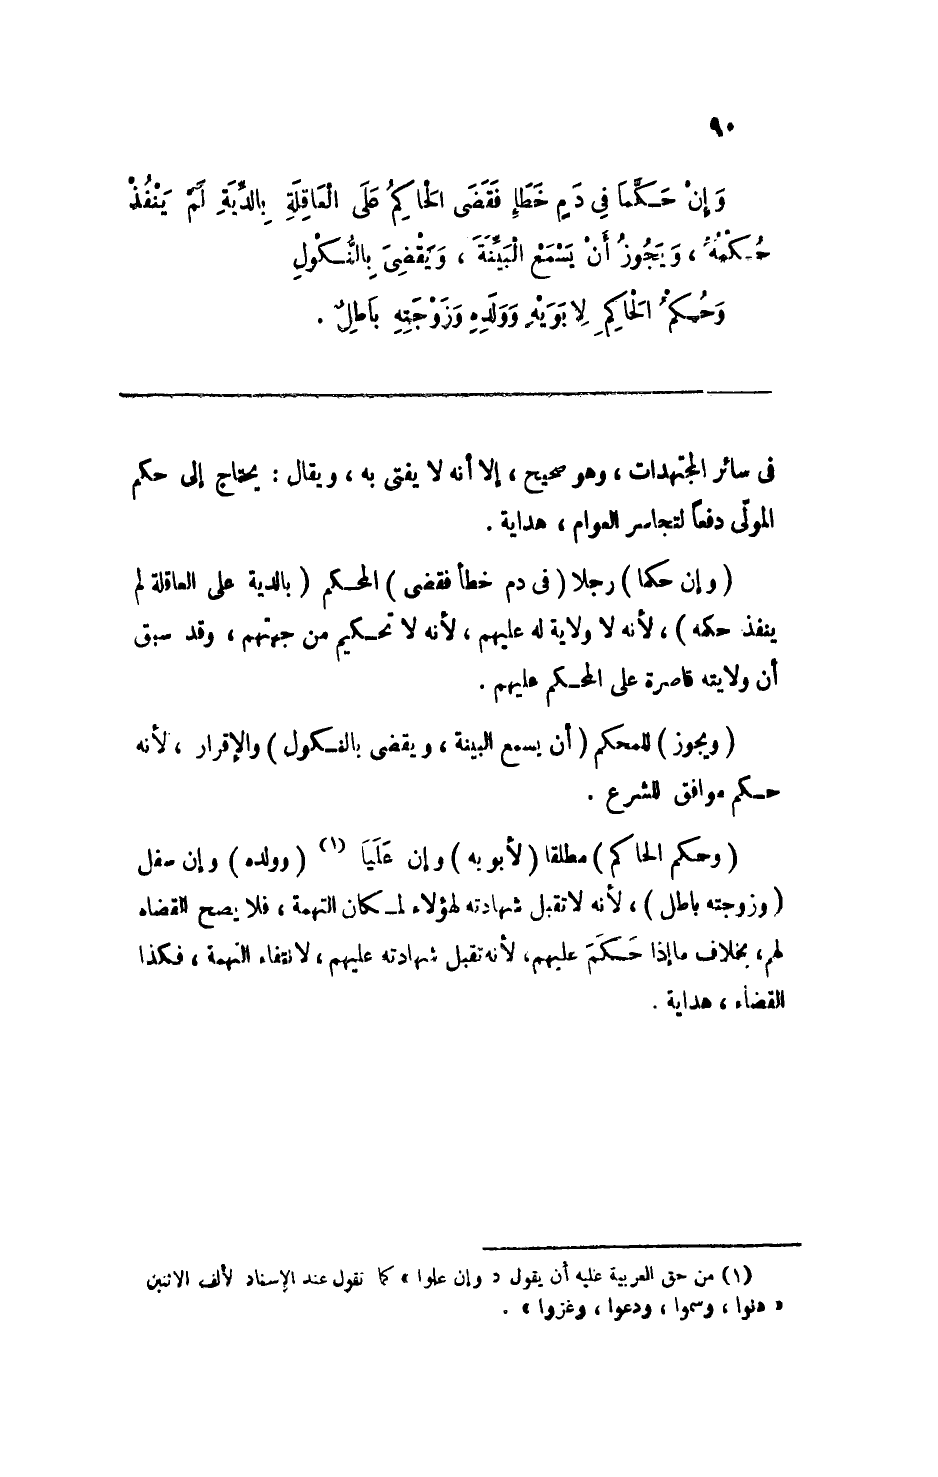 ٩٠
وَإِنْ حَـكَّمَا فِي دَمِ خَطَإِ فَقَضَى الْحَاكِمُ عَلَى الْعَاقِلَةِ بِالدِّيَةِ لَمْ يَنْفُذْ
حُـكْمُهُ ، وَيَجُوزُ أَنْ يَسْمَعَ الْبَيِّنَةَ ، وَيَقْضِيَ بِالنُّـكُولِ
وَحُـكْمُ الْحَاكِمِ لِأَبَوَيْهِ وَوَلَدِهِ وَزَوْجَتِهِ بَاطِلٌ .
فى سائر المجتهدات ، وهو صحيح ، إلا أنه لا يفتى به ، ويقال : يحتاج إلى حكم
المولّى دفعاً لتجاسر العوام ، هداية .
( وإن حكما ) رجلا ( فى دم خطأ فقضى ) المحـكم ( بالدية على العاقلة لم
ينفذ حكمه ) ، لأنه لا ولاية له عليهم ، لأنه لا تحـكيم من جهتهم ، وقد سبق
أن ولايته قاصرة على المحـكم عليهم .
( ويجوز ) للمحكم ( أن يسمع البينة ، ويقضى بالنـكول ) والإقرار ، لأنه
حـكم موافق للشرع .
( وحكم الحاكم ) مطلقا ( لأبويه ) وإن عَلَيَا (١) ( وولده ) وإن سفل
( وزوجته باطل ) ، لأنه لا تقبل شهادته لهؤلاء لمـكان التهمة ، فلا يصح القضاء
لهم ، بخلاف ما إذا حَـكَمَ عليهم، لأنه تقبل شهادته عليهم ، لانتفاء التهمة ، فـكذا
القضاء ، هداية .
(١) من حق العربية عليه أن يقول « وإن علوا » كما تقول عند الإسناد لألف الاثنين
« دنوا ، وسموا ، ودعوا ، وغزوا » .